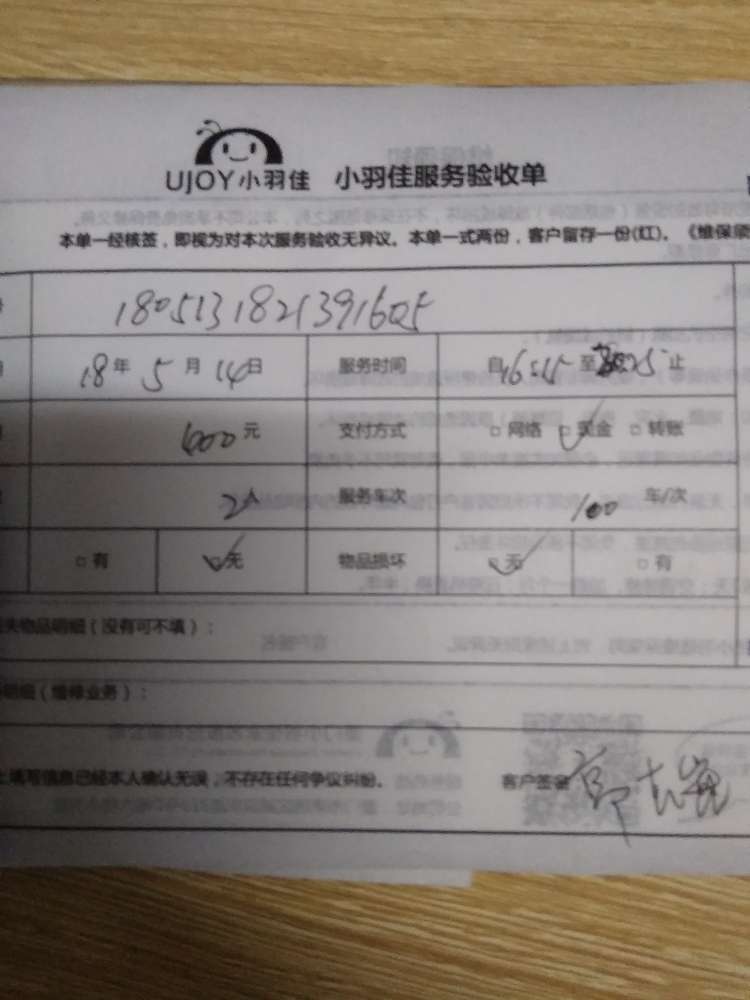 UJOY小羽佳 小羽佳服务验收单
本单一经核签，即视为对本次服务验收无异议。本单一式两份，客户留存一份(红)。《维保须
1805131821391605
18年 5月 14日 服务时间 自16:15至 止
600元 支付方式 □网络 □现金 □转账
2人 服务车次 100 车/次
□有 □无 物品损坏 □无 □有
失物品明细（没有可不填）：
明细（维修业务）：
上填写信息已经本人确认无误，不存在任何争议纠纷。 客户签名